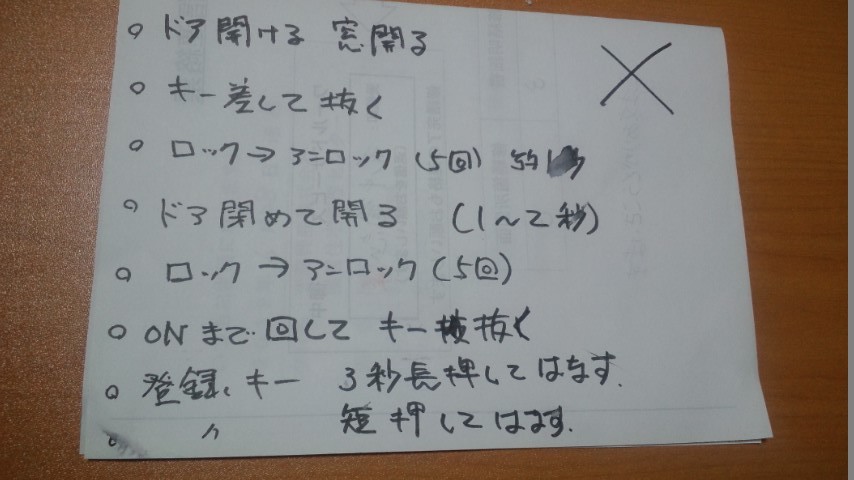 ドア開ける 窓開る
キー差して抜く
ロック→アンロック(5回)
ドア閉めて開る (1〜2秒)
ロック→アンロック(5回)
ONまで回して キー抜く
登録キー 3秒長押してはなす.
〃 短押してはなす.